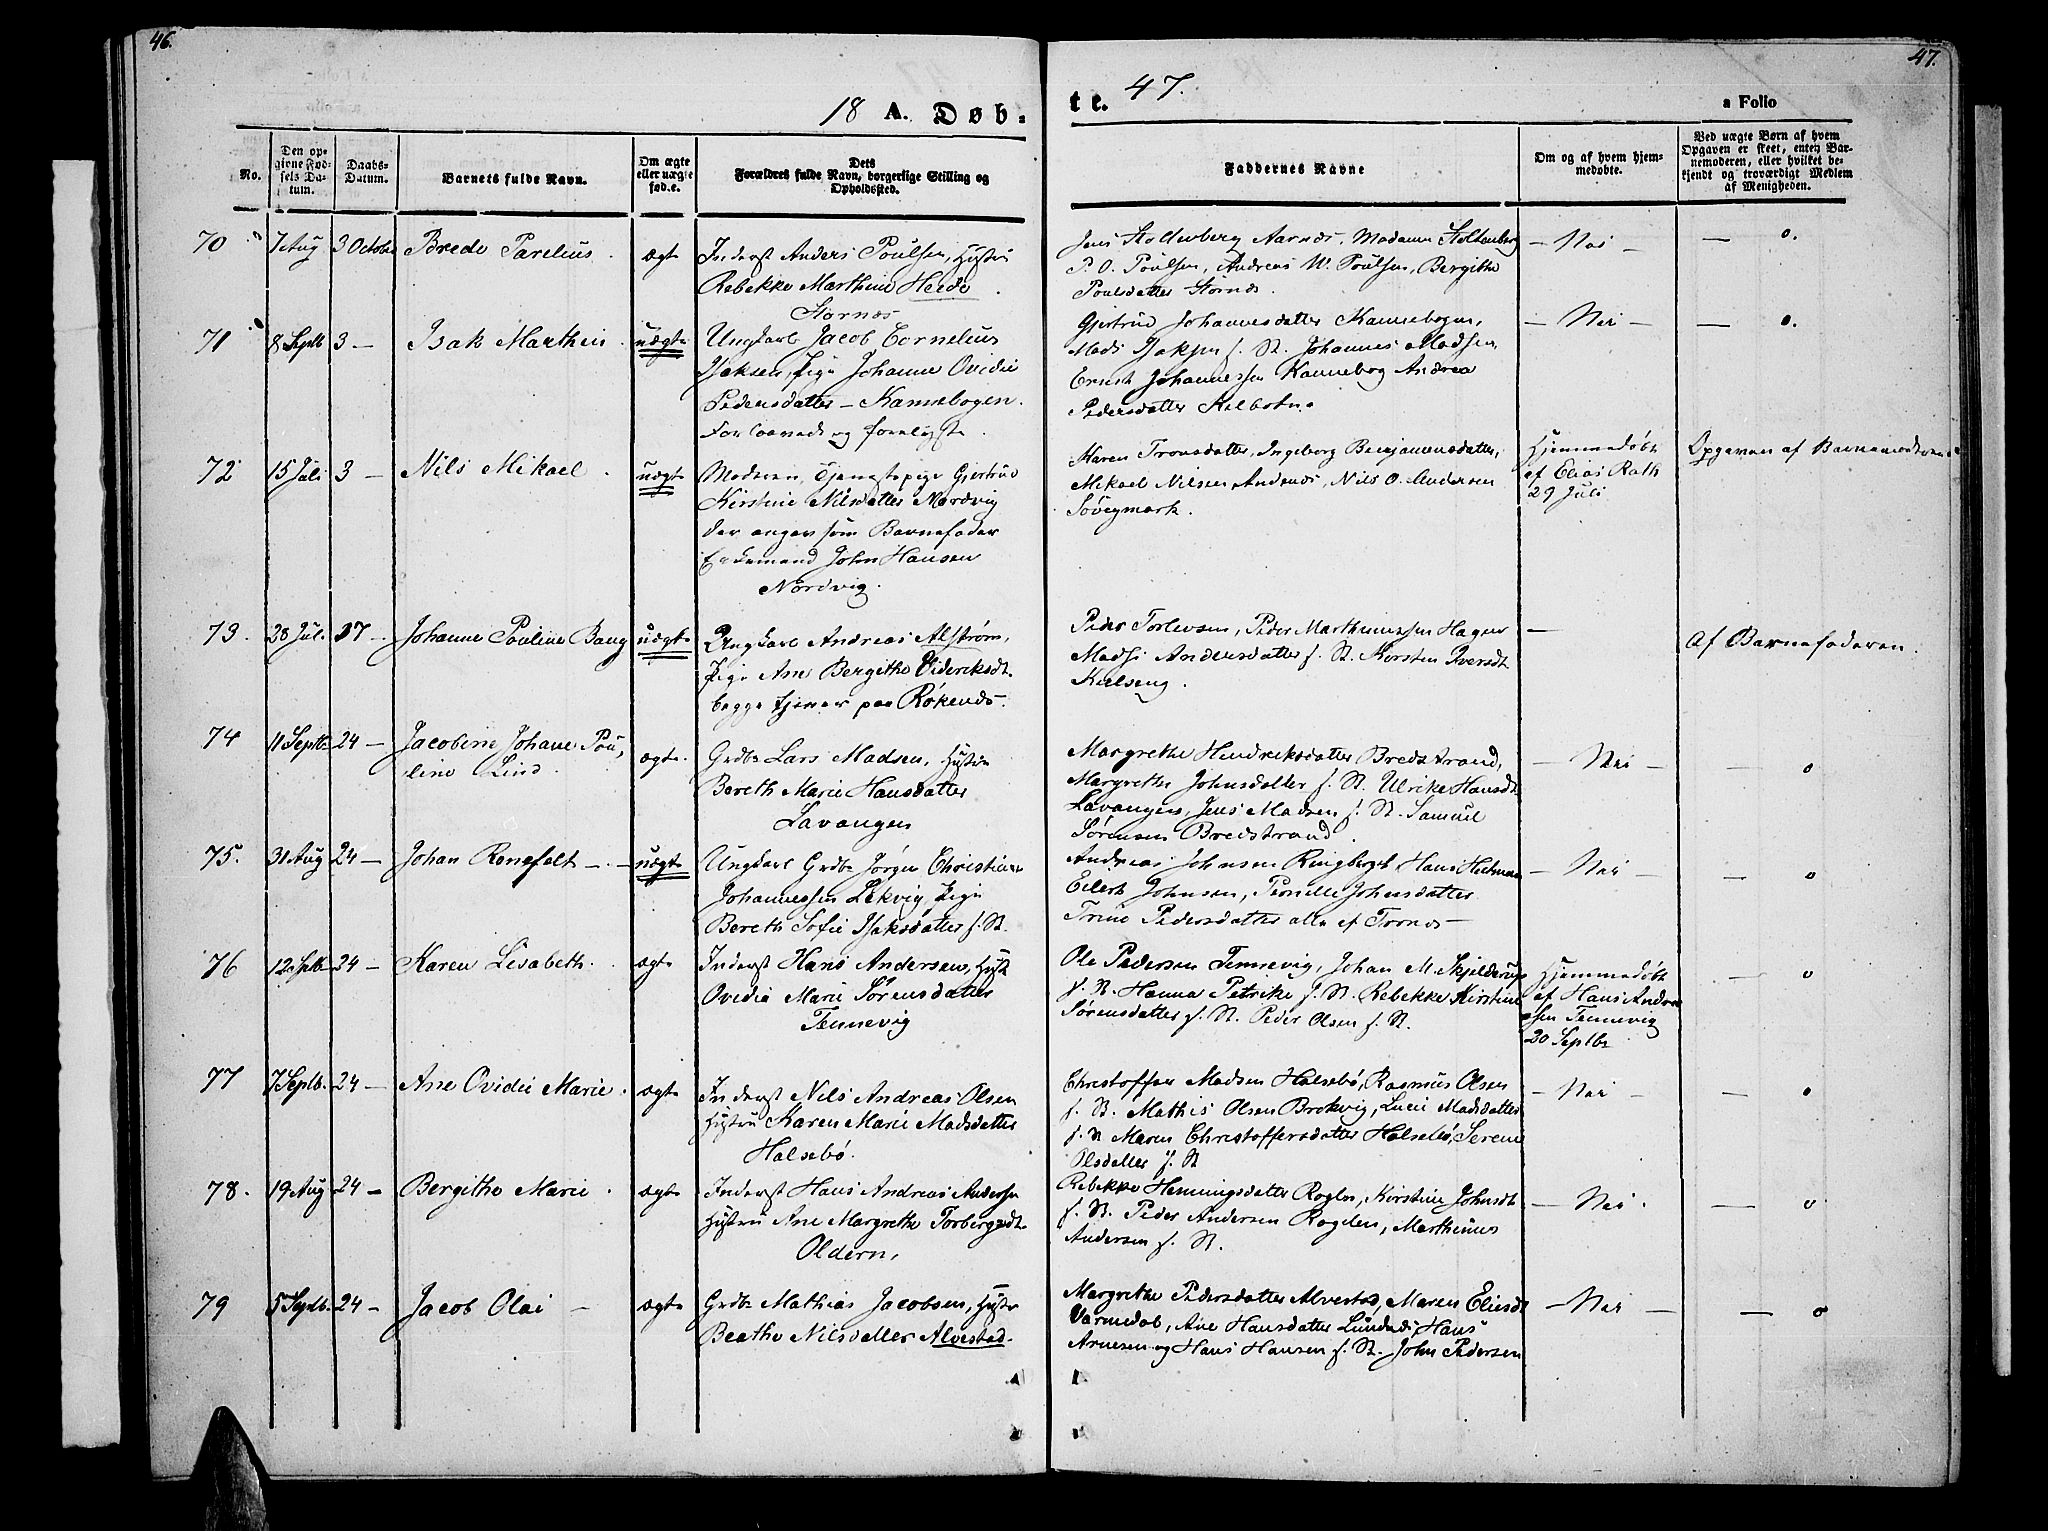 46.
47.
18 A. Døb-
te. 47.
a Folio
No.
Den op-
givne Fød-
sels Da-
tum.
Daabs-
Datum.
Barnets fulde Navn.
Om ægte
eller uægte
fød.e.
Dets
Forældres fulde Navn, borgerlige Stilling og
Opholdssted.
Faddernes Navne
Om og af hvem hjem-
medøbte.
Ved uægte Børn af hvem
Opgaven er skeet, enten Bar-
nemoderen, eller hvilket be-
kjendt og troværdigt Medlem
af Menigheden.
70 7 Aug 3 Octobr Brede Parelius ægt
Inderst Anders Poulsen, Hustru
Rebekke Marthine Heede
Stornes
Jens Stoltenberg Aarnes, Madame Stoltenberg
P. O. Poulsen, Andreas W. Poulsen, Bergithe
Poulsdatter Stornes.
— Nei — — o.
71 8 Septb 3 — Isak Marthin uægte
Ungkarl Jacob Cornelius
Isaksen, Pige Johanne Ovidie
Pedersdatter — Kannebogen.
Forlovede og forligte.
Gjertrud Johannesdatter Kannebogen,
Mads Isaksen f. St. Johannes Madsen,
Ernst Johannessen Kannebog Andrea
Pedersdatter Kilbotn.
— Nei — — o.
72 15 Juli 3 — Nils Mikael uægte
Moderen, Tjenestepige Gjertrud
Kirstine Nilsdatter Nordvig
der angav som Barnefader
Enkemand John Hansen
Nordvig.
Maren Tronsdatter, Ingeborg Benjaminsdatter,
Mikael Nilsen Andenes, Nils O. Andersen
Søvegmark.
Hjemmedøbt
af Elias Rath
29 Juli
Opgaven af Barnemoderen
73. 28 Jul. 17 — Johanne Pouline Bang uægte
Ungkarl Andreas Alstrøm,
Pige Ane Bergithe Videriksdt.
begge tjener paa Røkenes.
Peder Torlevsen, Peder Marthinussen Hagen
Madsi Andersdatter f. St. Kirsten Iversdt
Kielseng.
—
Af Barnefaderen.
74 11 Septb 24 — Jacobine Johane Pou-
line Lind. ægte.
Grdbr Lars Madsen, Hustru
Bereth Marie Hansdatter
Lavangen
Margrethe Hendriksdatter Bredstrand,
Margrethe Johnsdatter f. St. Ulrike Hansdt
Lavangen, Jens Madsen f. St. Samuel
Sørensen Bredstrand.
— Nei — — o
75. 31 Aug 24 — Johan Renefelt — uægte
Ungkarl Grdbr Jørgen Christian
Johannessen Lekvig, Pige
Bereth Sofie Isaksdatter f. St.
Andreas Johnsen Ringberget, Hans
Eilert Johnsen, Pernille Johnsdatter
Trine Pedersdatter alle af Trones —
— Nei — — o
76 12 Septb 24 — Karen Lisabeth. ægte
Inderst Hans Andersen, Hust
Ovidia Marie Sørensdatter
Tennevig
Ole Pedersen Tennevig, Johan M. Skjelderup
f. St. Hanna Petrike f. St. Rebekke Kirstine
Sørensdatter f. St. Peder Olsen f. St.
Hjemmedøbt
af Hans Andre
sen Tennevig
20 Septbr.
— o
77 7 Septb. 24 — Ane Ovidie Marie. ægte
Inderst Nils Andreas Olsen
Hustru Karen Marie Madsdatter
Halsebø.
Christoffer Madsen Halsebø, Rasmus Olsen
f. St. Mathis Olsen Brokvig, Lucie Madsdatter
f. St Maren Christoffersdatter Halsebø, Serene
Olsdatter f. St
— Nei — — o
78. 19 Aug 24 — Bergithe Marie. ægte
Inderst Hans Andreas Andersen
Hustru Ane Margrethe Torbergsdt
Oldern,
Rebekke Henningsdatter Roglen, Kirstine Johnsdt
f. St. Peder Andersen Rogden, Marthinus
Andersen f. St.
— Nei. — o
79 5 Septb. 24 — Jacob Olai — ægte
Grdbr Mathias Jacobsen, Hustr
Beathe Nilsdatter Alvestad.
Margrethe Pedersdatter Alvestad, Maren Eliesdt
Varmedal, Ane Hansdatter Lundnes, Hans
Arnesen og Hans Hansen f. St. John Pedersen
— Nei — — o